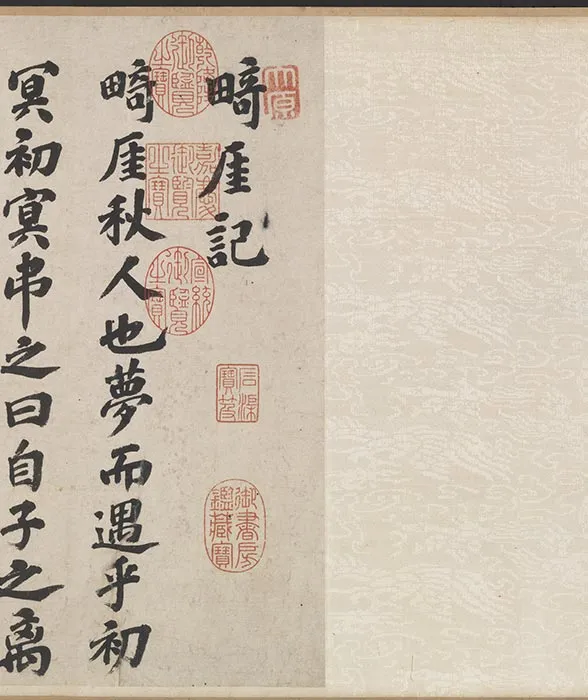 畸厓記
畸厓秋人也夢而遇乎初
冥初冥吊之曰自子之離
乾隆御覽之寶
嘉慶御覽之寶
宣統御覽之寶
石渠寶笈
御書房鑑藏寶